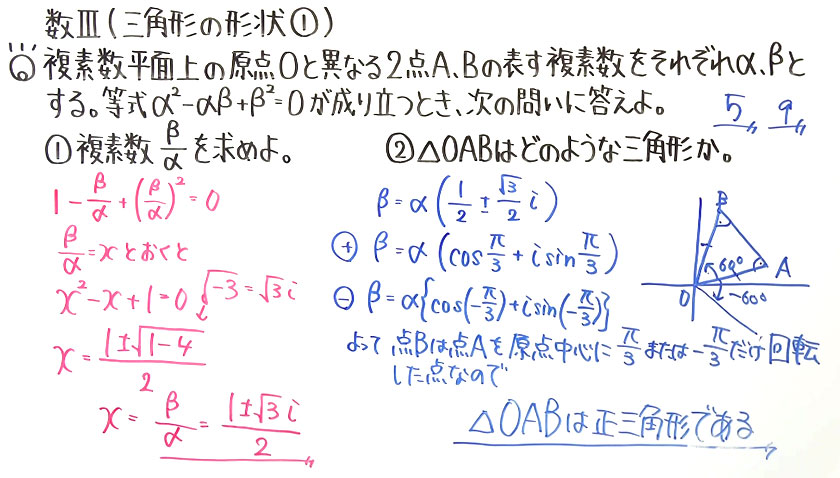 数Ⅲ(三角形の形状①)
複素数平面上の原点Oと異なる2点A、Bの表す複素数をそれぞれα、βと
する。等式α²-αβ+β²=0が成り立つとき、次の問いに答えよ。
5, 9
①複素数 β/α を求めよ。
1 - β/α + (β/α)² = 0
β/α = x とおくと
x² - x + 1 = 0
√-3 = √3 i
x = (1±√1-4)/2
x = β/α = (1±√3 i)/2
②△OABはどのような三角形か。
β = α(1/2 ± √3/2 i)
⊕ β = α(cos π/3 + i sin π/3)
⊖ β = α{cos(-π/3) + i sin(-π/3)}
B
A
O
60°
-60°
よって 点Bは点Aを原点中心に π/3 または -π/3 だけ回転
した点なので
△OABは正三角形である